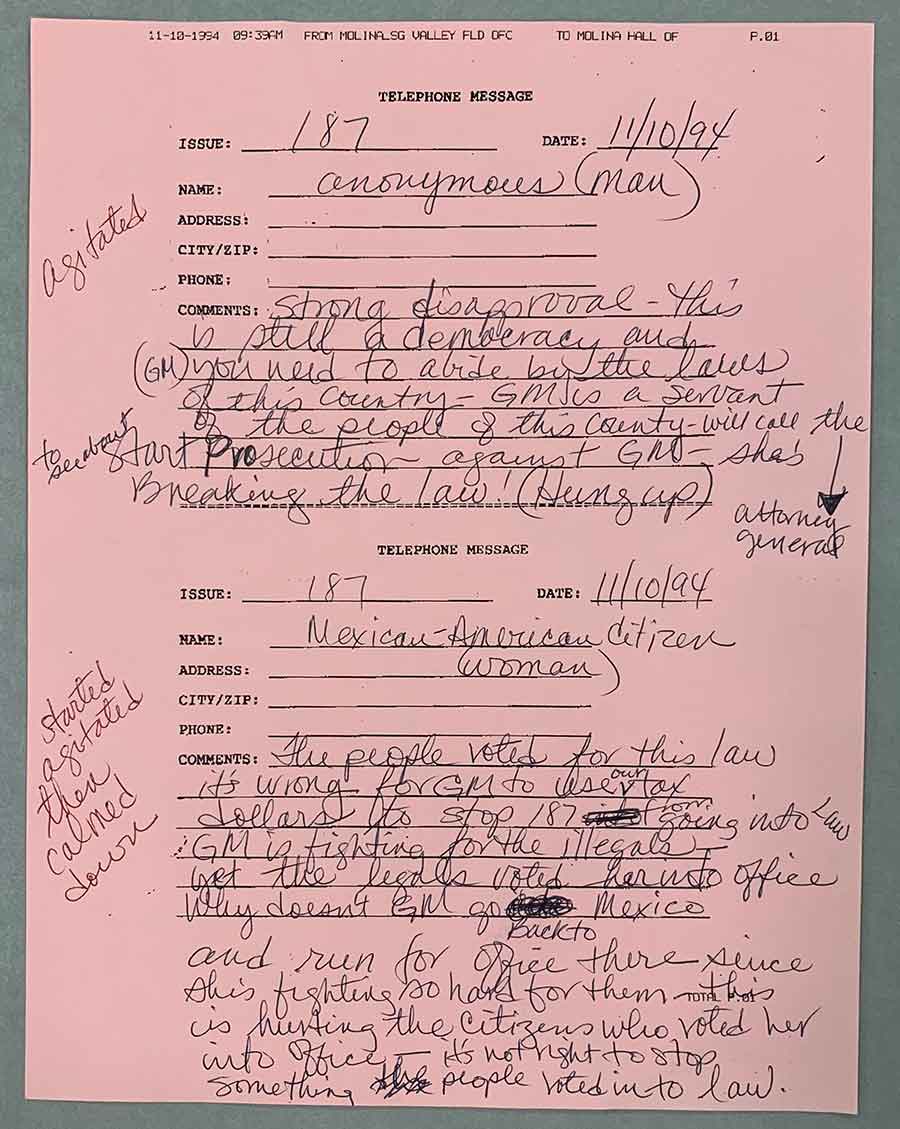 11-10-1994 09:39AM FROM MOLINA.SG VALLEY FLD OFC TO MOLINA HALL OF P.01
TELEPHONE MESSAGE
ISSUE: 187 DATE: 11/10/94
NAME: anonymous (man)
ADDRESS:
agitated
CITY/ZIP:
PHONE:
COMMENTS: Strong disapproval - this
is still a democracy and
(GM) you need to abide by the laws
of this country - GM is a servant
of the people of this county - will call the
attorney general
to see about
start Prosecution against GM - she's
Breaking the law! (Hung up)
TELEPHONE MESSAGE
ISSUE: 187 DATE: 11/10/94
NAME: Mexican-American Citizen
ADDRESS: (woman)
CITY/ZIP:
PHONE:
started
agitated
then
calmed
down
COMMENTS: The people voted for this law
it's wrong for GM to use our tax
dollars to stop 187 from going into law
GM is fighting for the illegals -
yet the legals voted her into office
Why doesn't GM go Back to Mexico
and run for office there since
she's fighting so hard for them - this
TOTAL P.01
is hurting the citizens who voted her
into office - it's not right to stop
something people voted into law.